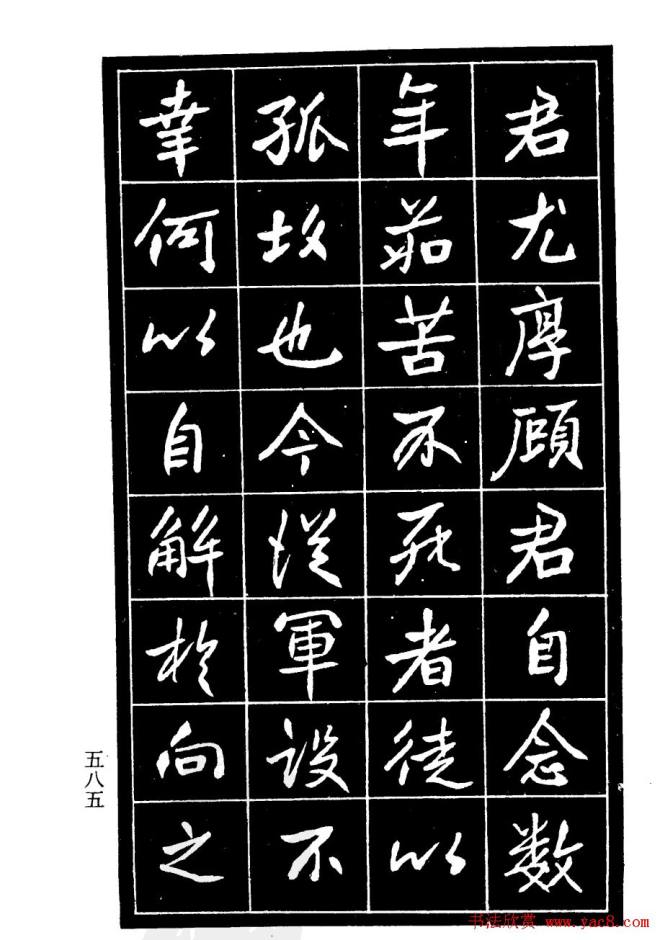 君尤厚顾君自念数
年茹苦不死者徒以
孤故也今從軍設不
幸何以自解於向之
五八五
书法欣赏 www.yac8.com